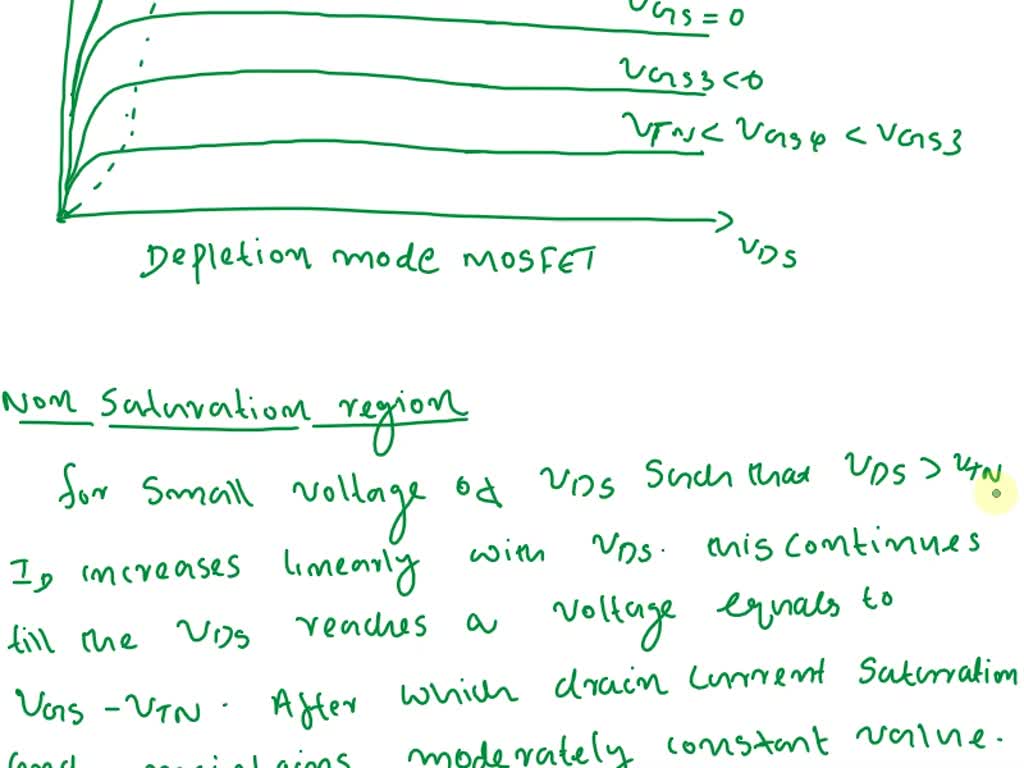 VGS = 0
VGS3 < 0
VTN < VGS4 < VGS3
VDS
Depletion mode MOSFET
Non Saturation region
for small voltage of VDS Such that VDS > VTN
ID increases linearly with VDS. this continues
till the VDS reaches a voltage equals to
VGS - VTN. After which drain current Saturation
and maintains moderately constant value.